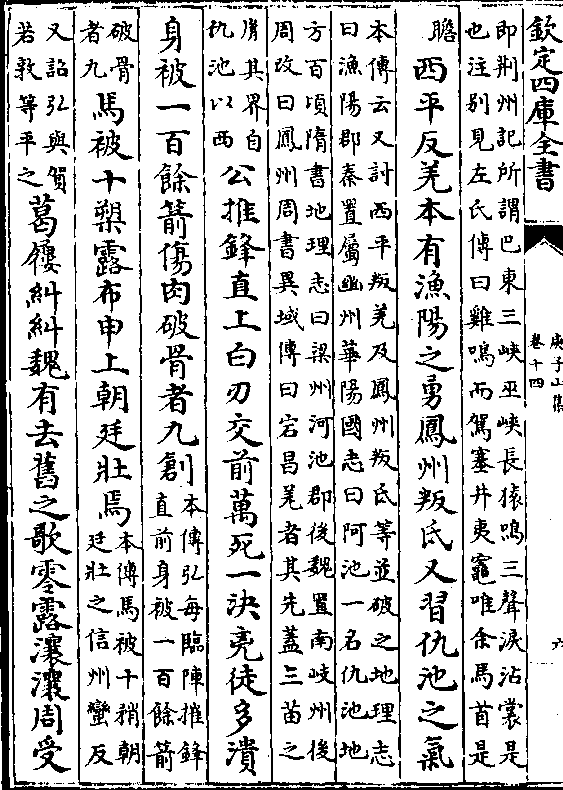 欽定四庫全書
庾子山集
卷十四
六
即荆州記所謂巴東三峽巫峽長猿鳴三聲淚沾裳是
也注别見左氏傳曰雞鳴而駕塞井夷竈唯余馬首是
瞻
西平反羌本有漁陽之勇鳳州叛氐又習仇池之氣
本傳云又討西平叛羌及鳳州叛氐等並破之地理志
曰漁陽郡秦置屬幽州華陽國志曰阿池一名仇池地
方百頃隋書地理志曰梁州河池郡後魏置南岐州後
周改曰鳳州周書異域傳曰宕昌羌者其先蓋三苗之
𦙍其界自
仇池以西
公推鋒直上白刃交前萬死一決兇徒多潰
身被一百餘箭傷肉破骨者九創
本傳弘每臨陣推鋒
直前身被一百餘箭
破骨
者九
馬被十槊露布申上朝廷壯焉
本傳馬被十矟朝
廷壯之信州蠻反
又詔弘與賀
若敦等平之
葛屨糾糾魏有去舊之歌零露瀼瀼周受